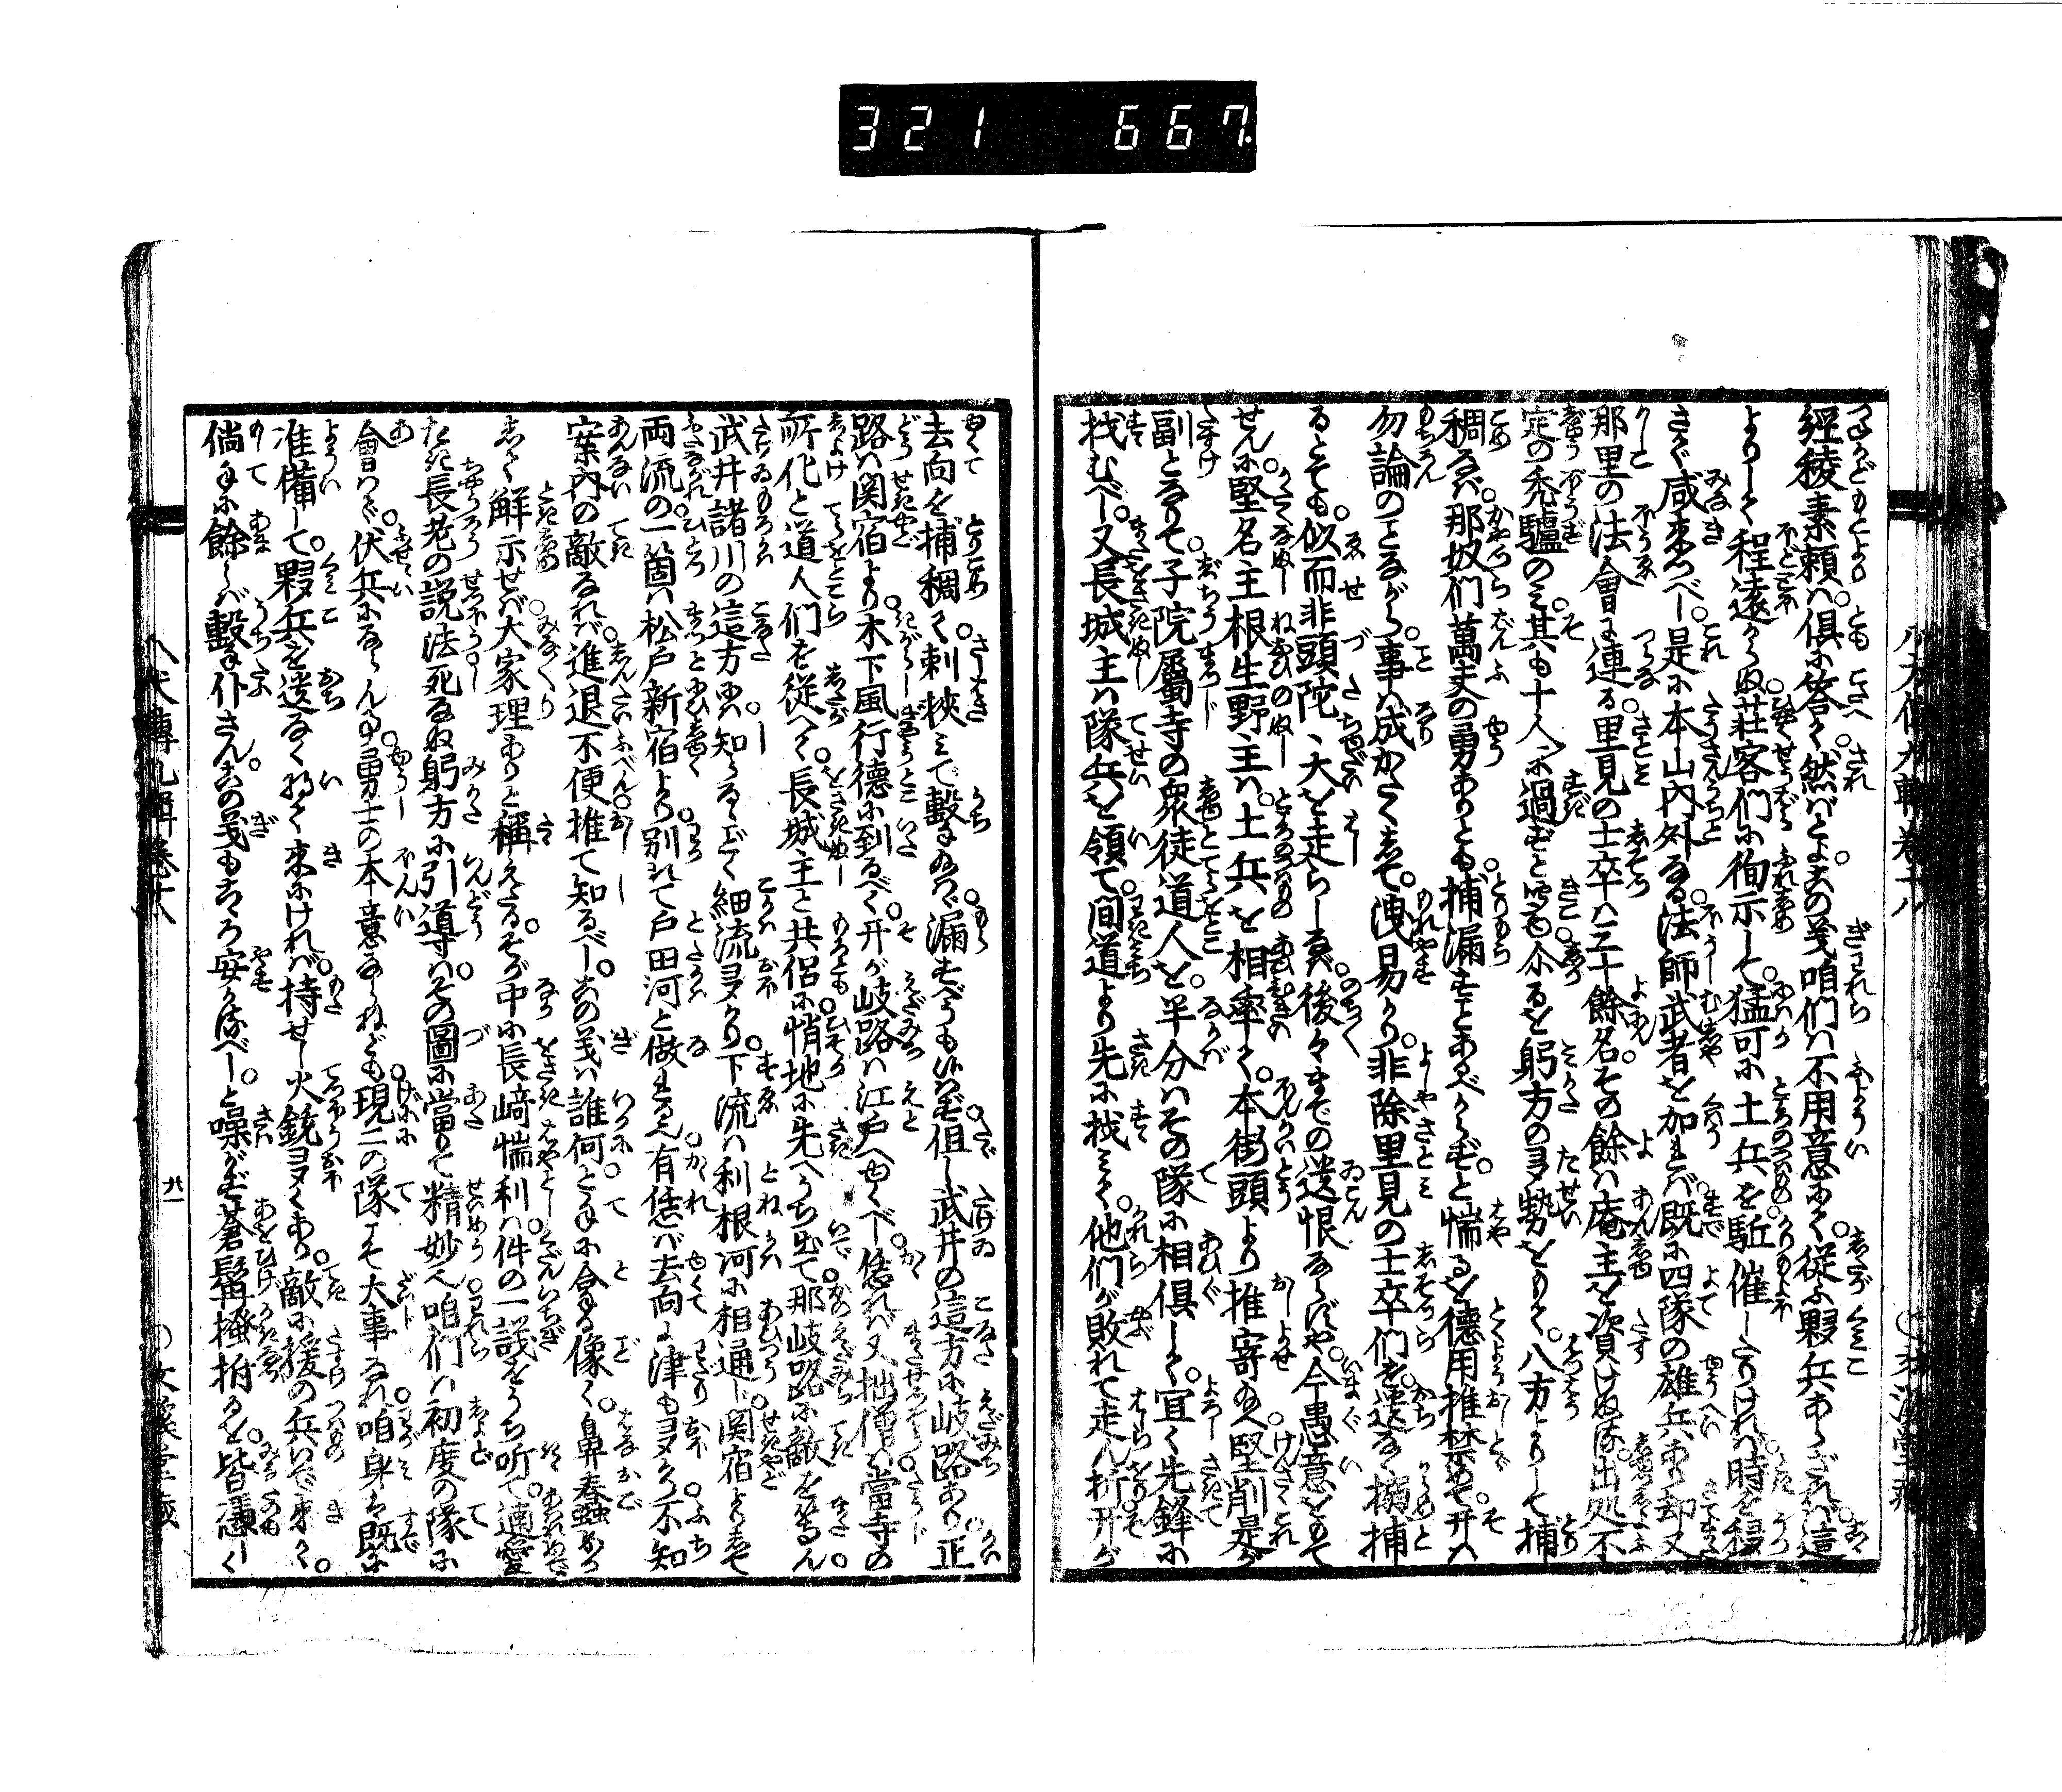 321 667.
經稜素頼ハ倶に答て然ばとよ這の義咱們ハ不用意にて從ふ夥兵あらざれバ這
より〳〵程遠からぬ荘客們に徇示して猛可に土兵を駈催したりけれバ時を移
さで咸來つべし是に本山内外なる法師武者を加れバ既に四隊の雄兵あり却又
那里の法會に連る里見の士卒ハ三十餘名その餘ハ庵主を資けぬる出処不
定の禿驢のミ其も十人に過ずと聞に介るを躬方の多勢をもて八方よりして捕
稠るバ那奴們萬夫の勇ありとも捕漏すことあるべからずと惴るを德用推禁めて开ハ
勿論のことながら事ハ成かたくして洩易かり非除里見の士卒們を送なく搦捕
るとても似而非頭陀、大を走らしなバ後々までの遺恨ならずや今愚意をもて
せんに堅名主根生野主ハ土兵を相率て本街頭より推寄給へ堅削是が
副となりて子院屬寺の衆徒道人を半分ハその隊に相倶して宜く先鋒に
找むべし又長城主ハ隊兵を領て間道より先に找ミて他們が敗れて走ん折开が
去向を捕稠て刺挾ミて擊給はゞ漏すべうも候はず但し武井の這方に岐路あり正
路ハ関宿より木下風行德に到るべく开が岐路ハ江戸へゆくべし恁れバ又拙僧ハ當寺の
所化と道人們を從へて長城主と共侶に悄地に先へうち出て那岐路に敵を等ん
武井諸川の這方にハ知らるゝごとく細流多かり下流ハ利根河に相通じ関宿よりして
両流の一箇ハ松戸新宿より別れて戸田河と做れるも有恁バ去向に津も多かり不知
案内の敵なれバ進退不便推て知るべし這の義ハ誰何とふに令る像く鼻蠢めかつ
しく解示せバ大家理ありと稱えたるそが中に長﨑惴利ハ件の一議をうち听て適愛
たき長老の説法死なぬ躬方に引導ハその圖に當りて精妙へ咱們ハ初度の隊に
會はで伏兵にならん事勇士の本意ならねども現二の隊こそ大事なれ咱身も既に
准備して夥兵を送なく將て來にけれバ持せし火銃多くあり敵に援の兵いで來て
倘手に餘らバ擊仆さん這の義もこゝろ安かるべしと噪がず蒼髯掻拊るを皆憑しく
八犬傳九輯卷十八
廿一
○文溪堂藏